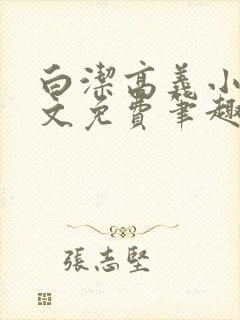 白潔高義小
文免費筆趣
張志堅